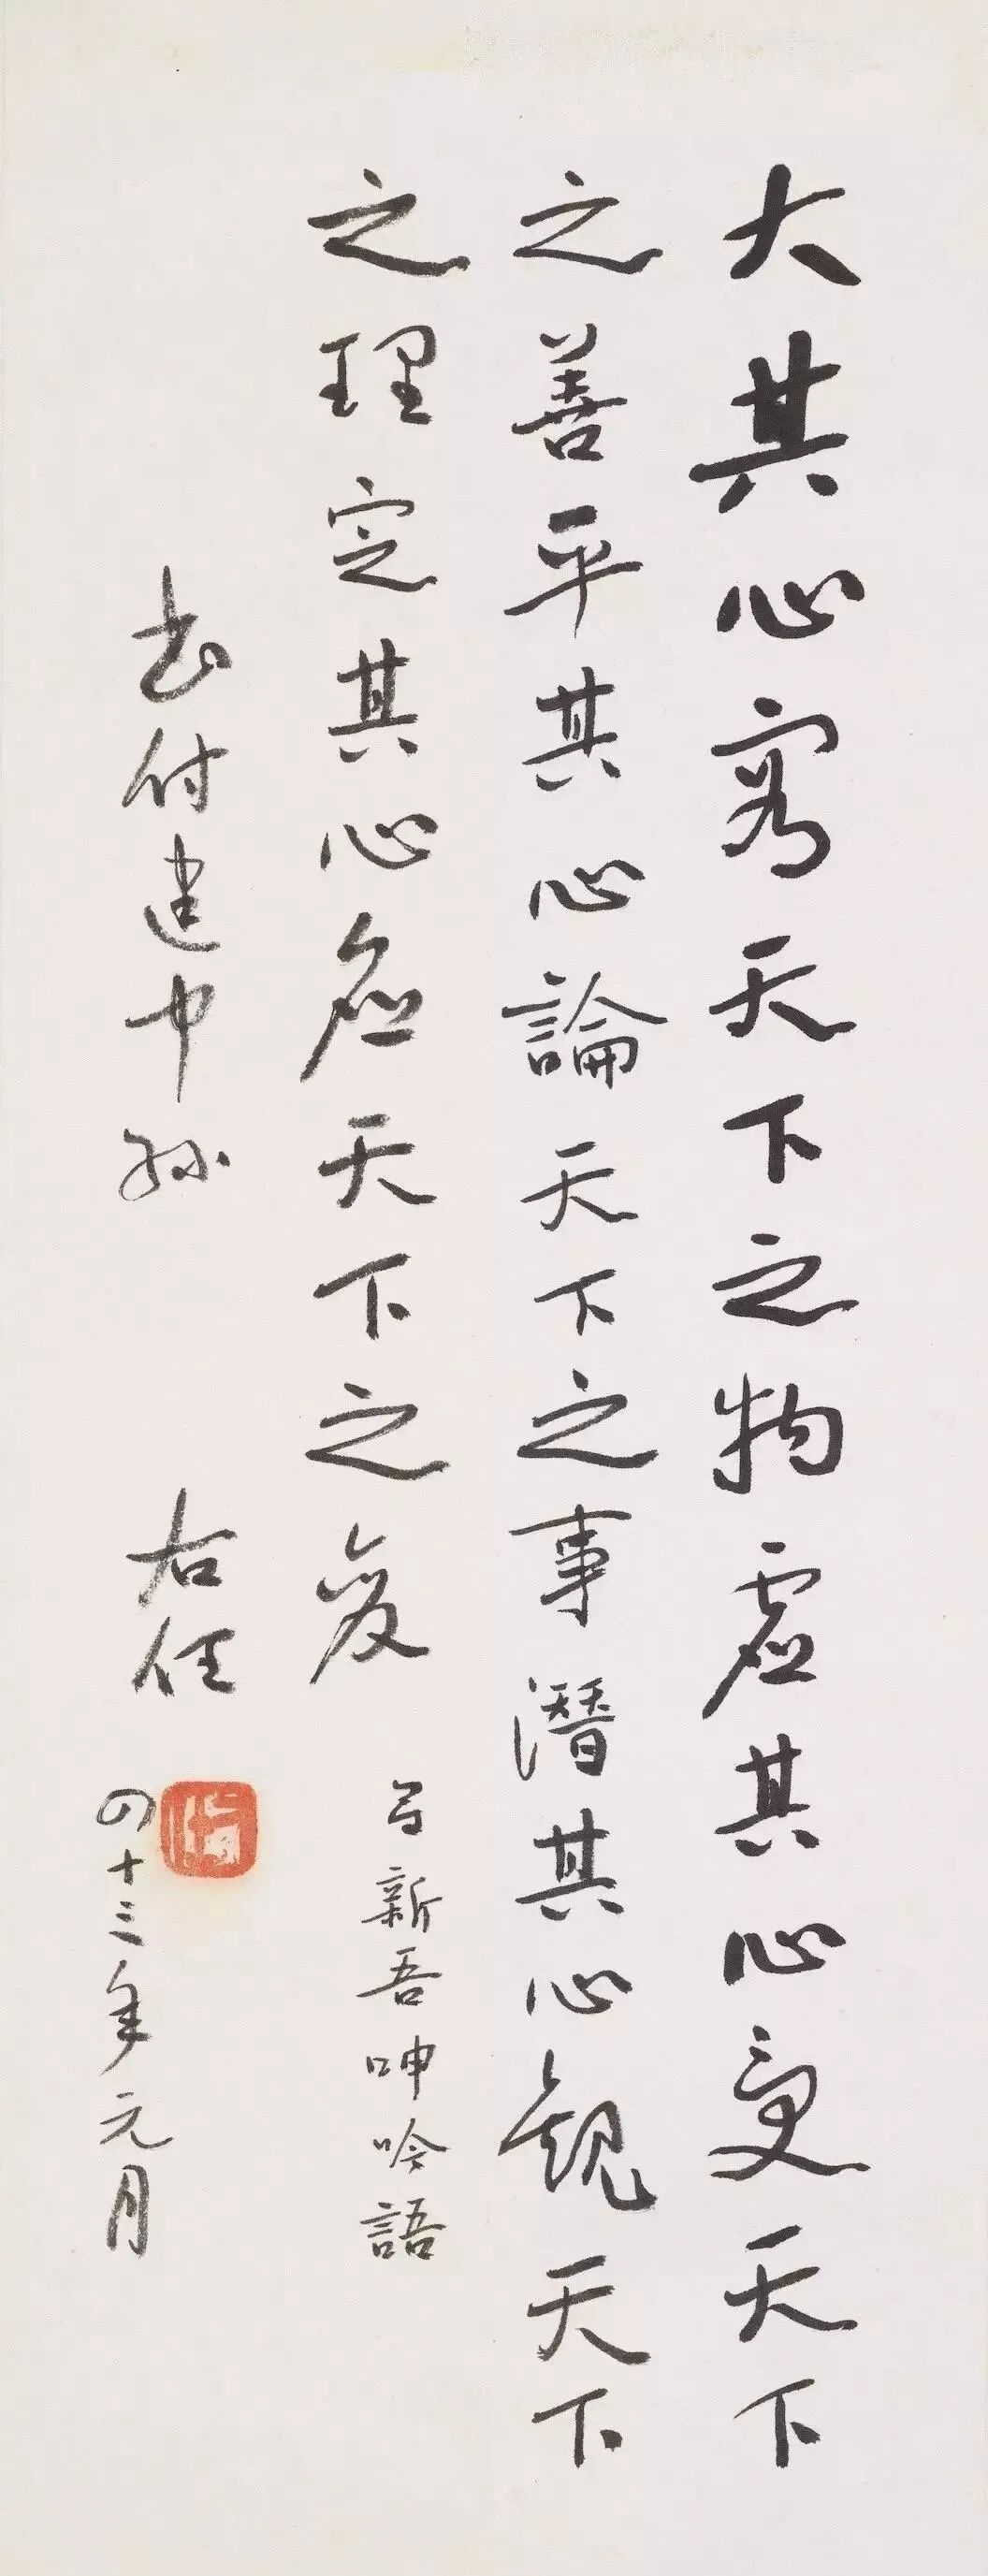 大其心容天下之物虛其心受天下
之善平其心論天下之事潛其心觀天下
之理定其心應天下之變
呂新吾呻吟語
書付建中孫 右任
四十三年元月